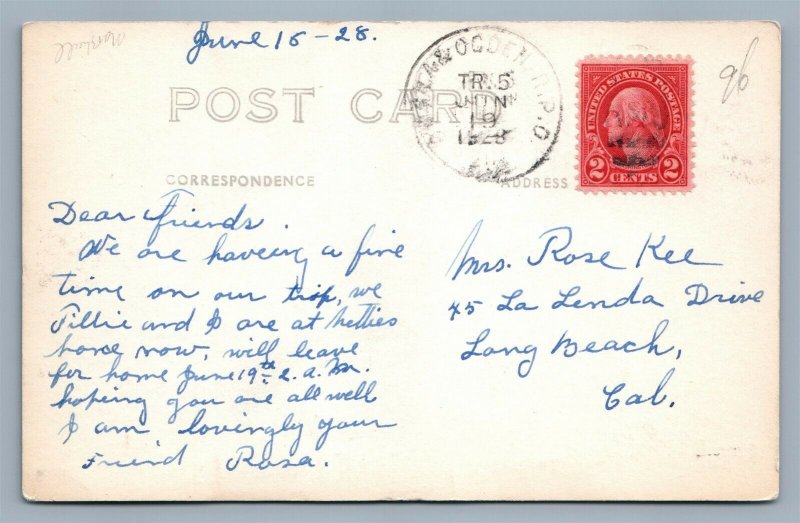 Marshall
June 16-28.
POST CARD
& OGDEN R.P.O.
TR.5
JUN
19
1928
UNITED STATES POSTAGE
2 CENTS 2
96
CORRESPONDENCE
ADDRESS
Dear Friends.
We are haveing a fine
time on our trip, we
Tillie and I are at Netties
home now, will leave
for home June 19th 2. a.m.
hoping you are all well
I am lovingly your
Friend Rosa.
Mrs. Rose Kee
45 La Lenda Drive
Long Beach,
Cal.